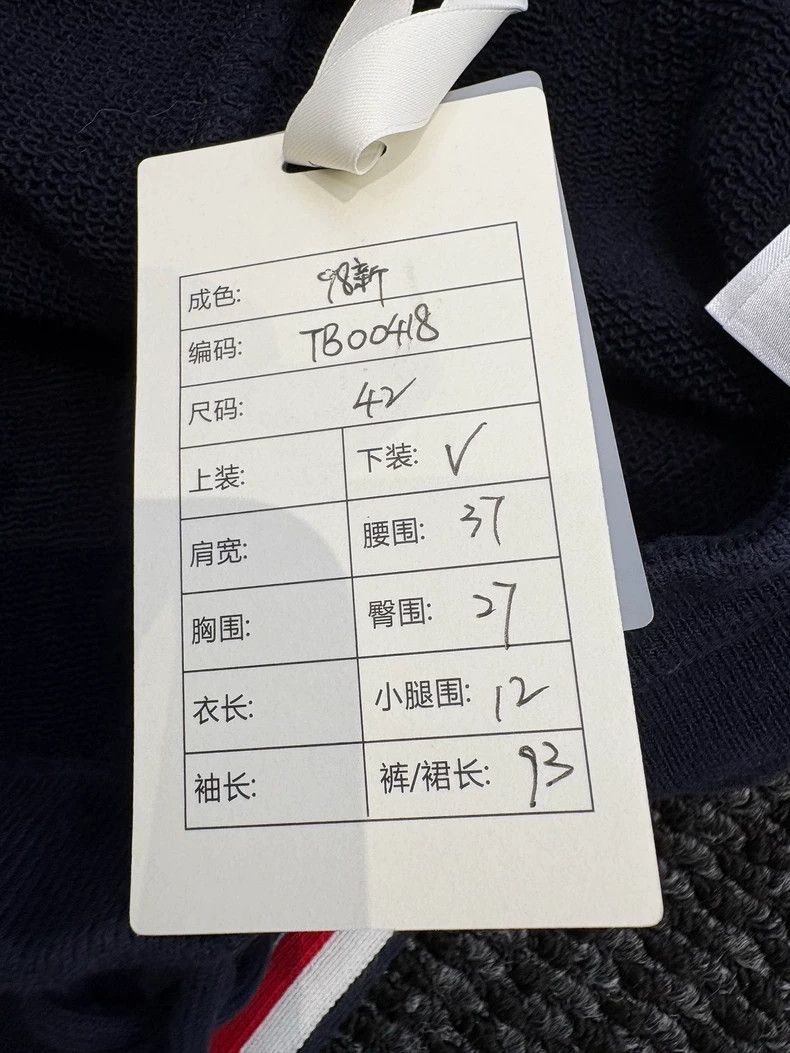 成色: 98新
编码: TB00418
尺码: 42
上装: 下装: √
肩宽: 腰围: 37
胸围: 臀围: 27
衣长: 小腿围: 12
袖长: 裤/裙长: 93